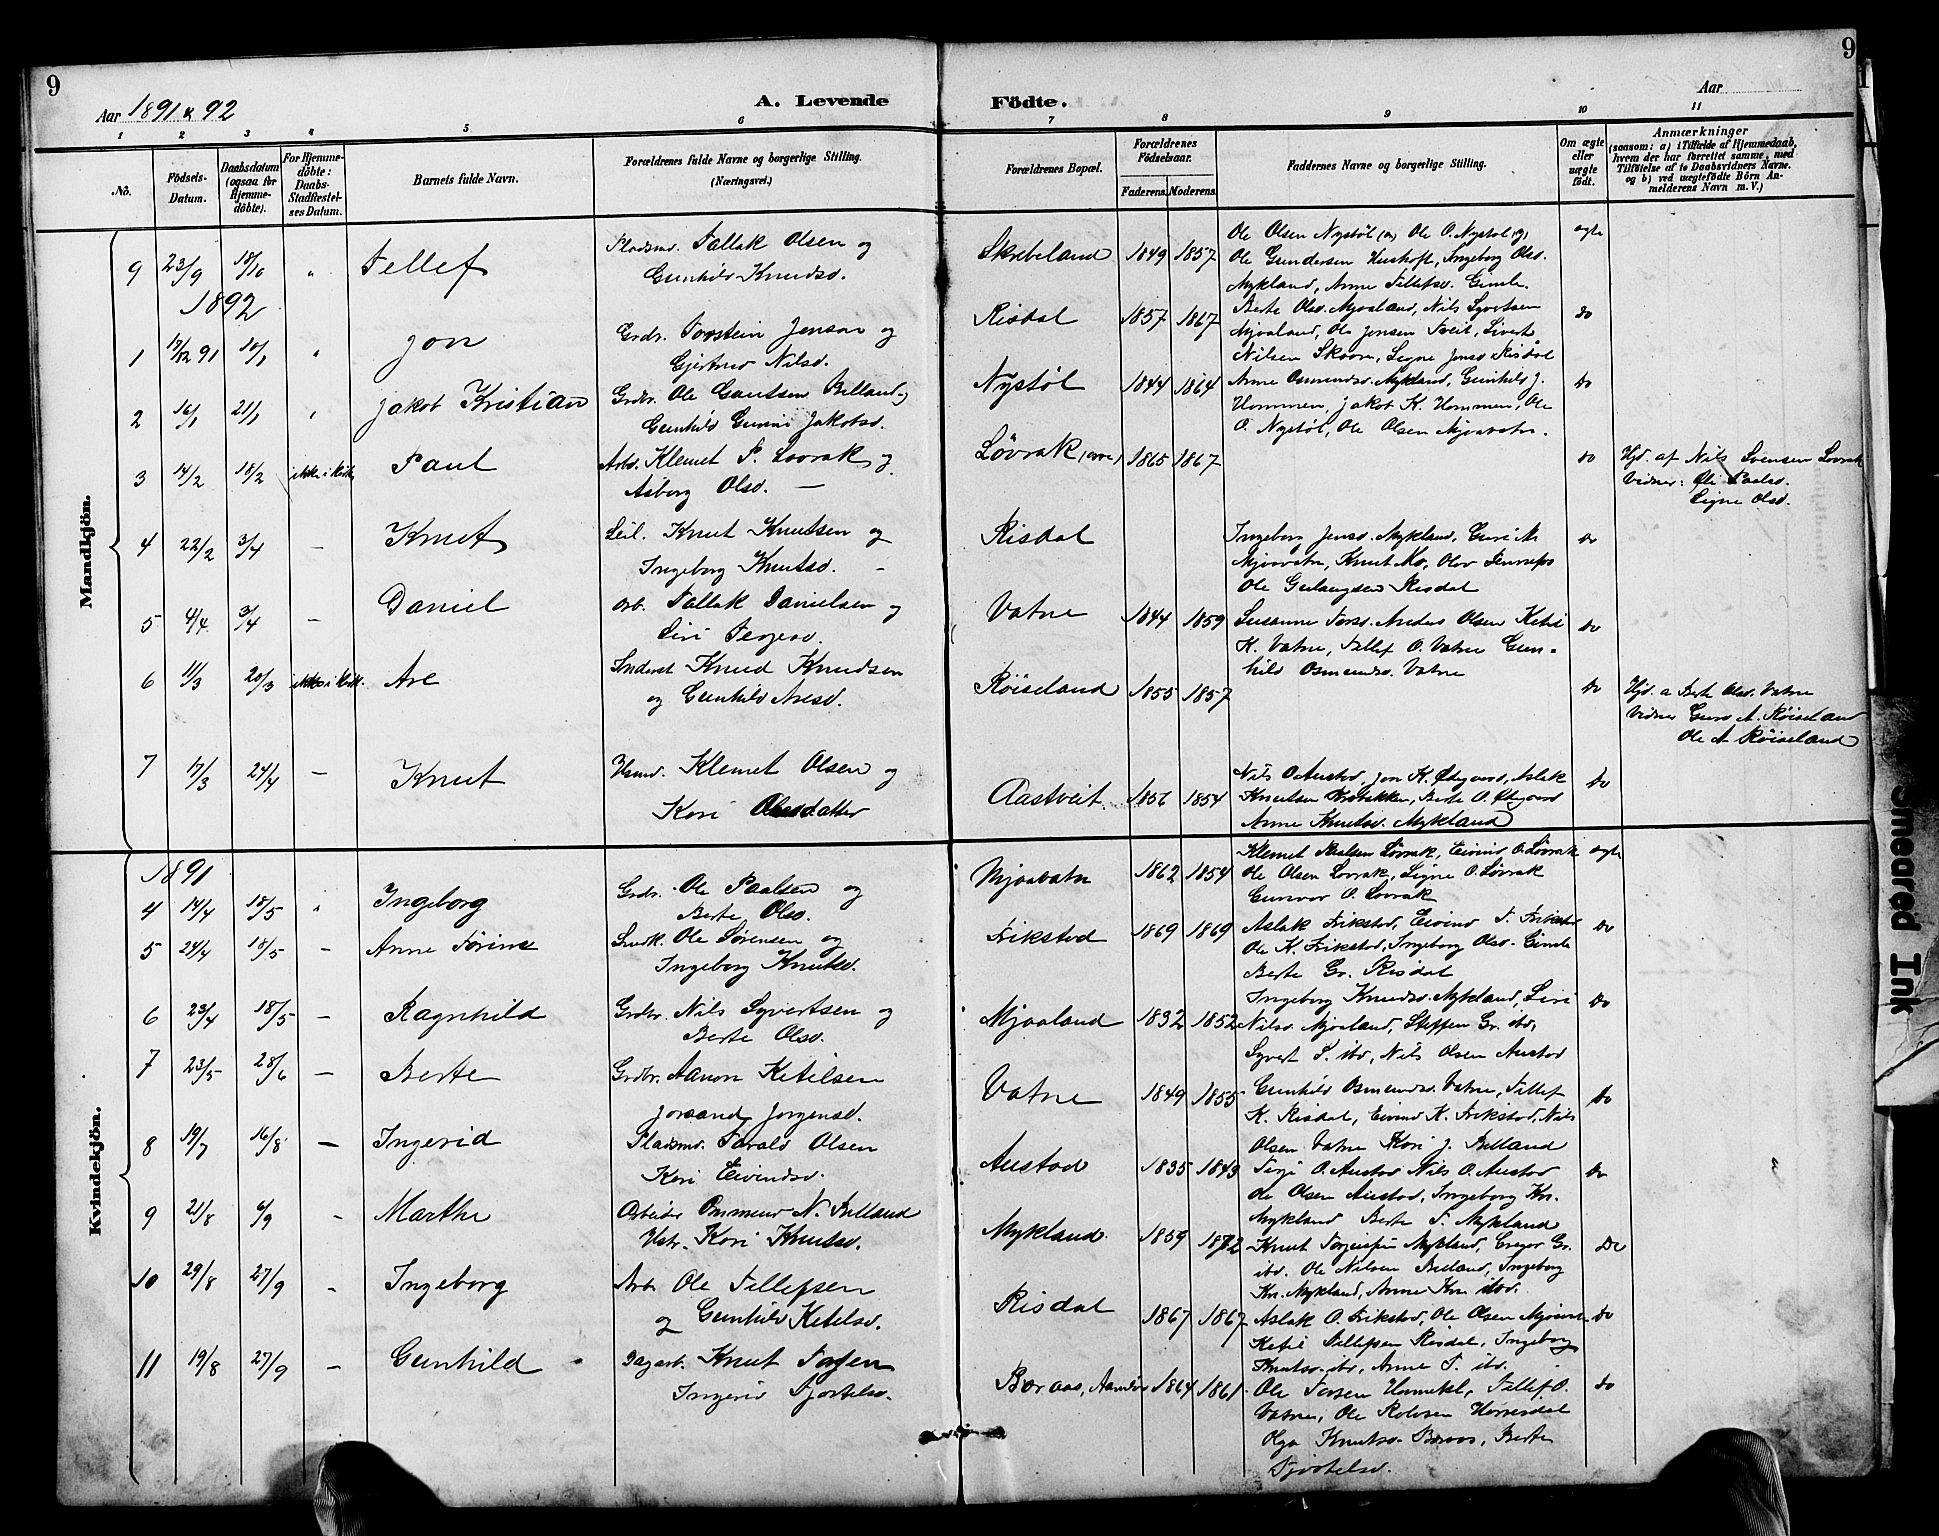 9
9
Aar 1891 & 92
A. Levende Födte.
Aar
1 2 3 4 5 6 7 8 9 10 11
No.
Födsels-Datum.
Daabsdatum (ogsaa for Hjemmedöbte).
For Hjemmedöbte: Daabs-Stadfæstelses Datum.
Barnets fulde Navn.
Forældrenes fulde Navne og borgerlige Stilling. (Næringsvei.)
Forældrenes Bopæl.
Forældrenes Födselsaar.
Faderens. Moderens.
Faddernes Navne og borgerlige Stilling.
Om ægte eller uægte födt.
Anmærkninger
(saasom: a) i Tilfælde af Hjemmedaab, hvem der har forrettet samme, med Tilföielse af to Daabsvidners Navne. og b) ved uægtefödte Börn Anmelderens Navn m. V.)
Mandkjön.
9 23/9 18/10 " Tellef
Pladsmd. Tallak Olsen og
Gunhild Knudsd.
Skrebeland 1849 1857
Ole Olsen Nystøl (æ) Ole O. Nystøl (y)
Ole Gundersen Hushoft, Ingeborg Olsd.
Mykland, Anne Tellefsd. Gimle.
ægte
1892
1 17/12 91 10/1 " Jon
Grdr. Torstein Jensen og
Gjertrud Nilsd.
Risdal 1857 1867
Berte Olsd. Mjoaland, Nils Syvertsen
Mjoaland, Ole Jensen Tveit, Sivert
Nilsen Skaare, Signe Jensd. Risdal
do
2 16/1 21/1 " Jakob Kristian
Grdbr. Ole Gautsen Belland og
Gunhild Gurine Jakobsd.
Nystöl 1844 1864
Anne Osmundsd. Mykland, Gunhild J.
Hommen, Jakob K. Hommen, Ole
O. Nystøl, Ole Olsen Mjoavatn.
do
3 14/2 18/2 ikke i Kirke Paul
Arbd. Klemet P. Lovrak og
Asborg Olsd. —
Lövrak 1865 1867
do
Hjd. af Nils Svensen Lovrak
Vidner: Ole Paalsd.
Signe Olsd.
4 22/2 3/4 — Knut
Leil. Knut Knutsen og
Ingeborg Knutsd. -
Risdal
Ingeborg Jensd. Mykland, Guri N.
Mjoavatn, Knut Mo, Olav
Ole Gulaugsen Risdal
do
5 4/4 3/4 — Daniel
Arb. Tallak Danielsen og
Siri Terjesd.
Vatne 1844 1859
Susanne Torsd. Anders Olsen Ketil
K. Vatne, Tellef O. Vatne Gun-
hild Osmundsd. Vatne
do
6 11/3 20/3 ikke i Kirk. Are
Inderst Knud Knudsen
og Gunhild Aresd.
Röiseland 1855 1857
do
Hjd. a Berte Olsd. Vatne
Vidner Guro A. Röiseland
Ole A Röiseland
7 17/3 24/4 — Knut
Husmd. Klemet Olsen og
Kari Olesdatter
Aastveit. 1856 1854
Nils O. Austad, Jon K. Ødegaard, Aslak
Knutsen, Berte O. Ødegaard
Anne Knutsd. Mykland
do
Kvindekjön.
1891
4 14/4 18/5 " Ingeborg
Grdr. Ole Paalsen og
Berte Olsd.
Mjoavatn 1862 1854
Klemet Paalsen Lövrak, Eivind O. Lövrak
Ole Olsen Lovrak, Signe O. Lövrak
Gunvor O. Lovrak
ægte
5 24/4 18/5 — Anne Tørine
Ole Sørensen og
Ingeborg Knutsd.
Frikstad 1869 1869
Aslak Frikstad, Eivind T. Frikstad
Ole K. Frikstad, Ingeborg Olsd. Gimle
Berte Gr. Risdal
do
6 23/4 18/5 — Ragnhild
Grdbr. Nils Syvertsen og
Berte Olsd.
Mjoaland 1832 1852
Ingeborg Knudsd. Mykland, Siri
Nilsd. Mjoaland, Steffen Gr. ibd.
Syvert S. ibd., Nils Olsen Austad
do
7 23/5 28/6 — Berte
Grdbr. Aanon Ketilsen
Jorand Jorgensd.
Vatne 1849 1855
Gunhild Osmundsd. Vatne, Tellef
K. Risdal, Eivind K. Frikstad, Nils
Olsen Vatne Kari J. Belland
do
8 19/7 16/8 — Ingerid
Pladsmd. Tarald Olsen
Kari Eivindsd.
Austad 1835 1843
Terje O. Austad Nils O. Austad
Ole Olsen Austad, Ingeborg Kn.
Mykland Berte T. Mykland
do
9 21/8 6/9 - Marthe
Arbeider Ommund N. Belland
Hstr. Kari Knutsd.
Mykland. 1859 1872
Knut Mykland, Gregor Gr.
ibd. Ole Nilsen Belland, Ingeborg
Kn. Mykland, Anne Kn. ibd.
do
10 29/8 27/9 - Ingeborg
Arb. Ole Tellefsen
og Gunhild Ketelsd.
Risdal 1867 1867
Aslak O. Frikstad, Ole Olsen
Ketil Tellefsen Risdal, Ingeborg
Knutsd. ibd, Anne T. ibd.
do
11 19/8 27/9 — Gunhild
Dagarb. Knut Torsen
Ingerid
Boraas, 1864 1861
Ole Torsen, Tellef O.
Vatne, Ole Rolvsen
Olga Knutsd. Boraas, Berte
do
Smeared Ink